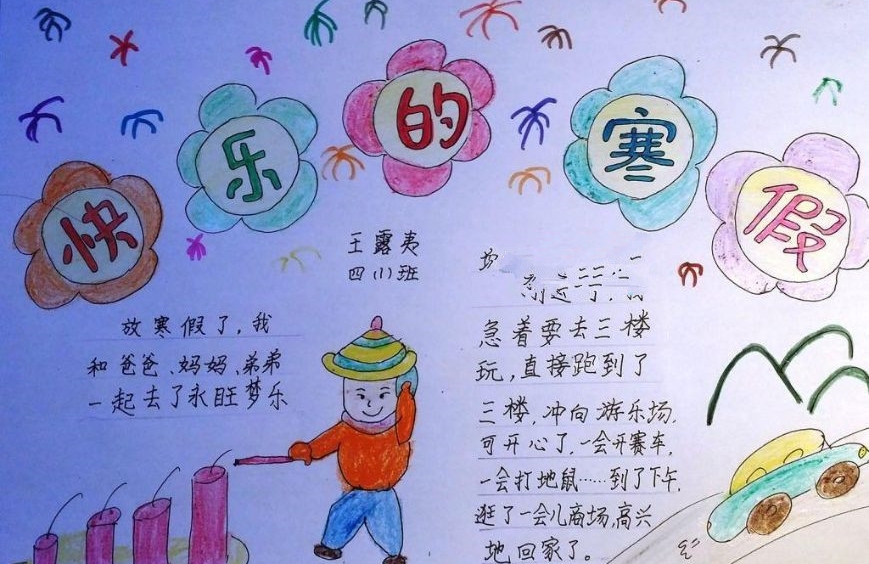 快乐的寒假
王露夷
四(1)班
放寒假了,我
和爸爸、妈妈、弟弟
一起去了永旺梦乐
急着要去三楼
玩,直接跑到了
三楼,冲向游乐场,
可开心了,一会开赛车,
一会打地鼠……到了下午,
逛了一会儿商场,高兴
地回家了。